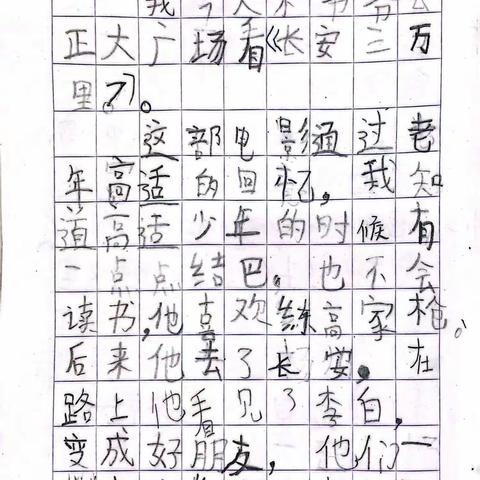 正大广场看《长安三万
里》。
这部电影通过老
年高适的回忆,我知
道高适少年的时候有
一点点结巴。也不会
读书,他喜欢练高家枪。
后来他去了长安。在
路上他看见了李白,
变成好朋友,他们一